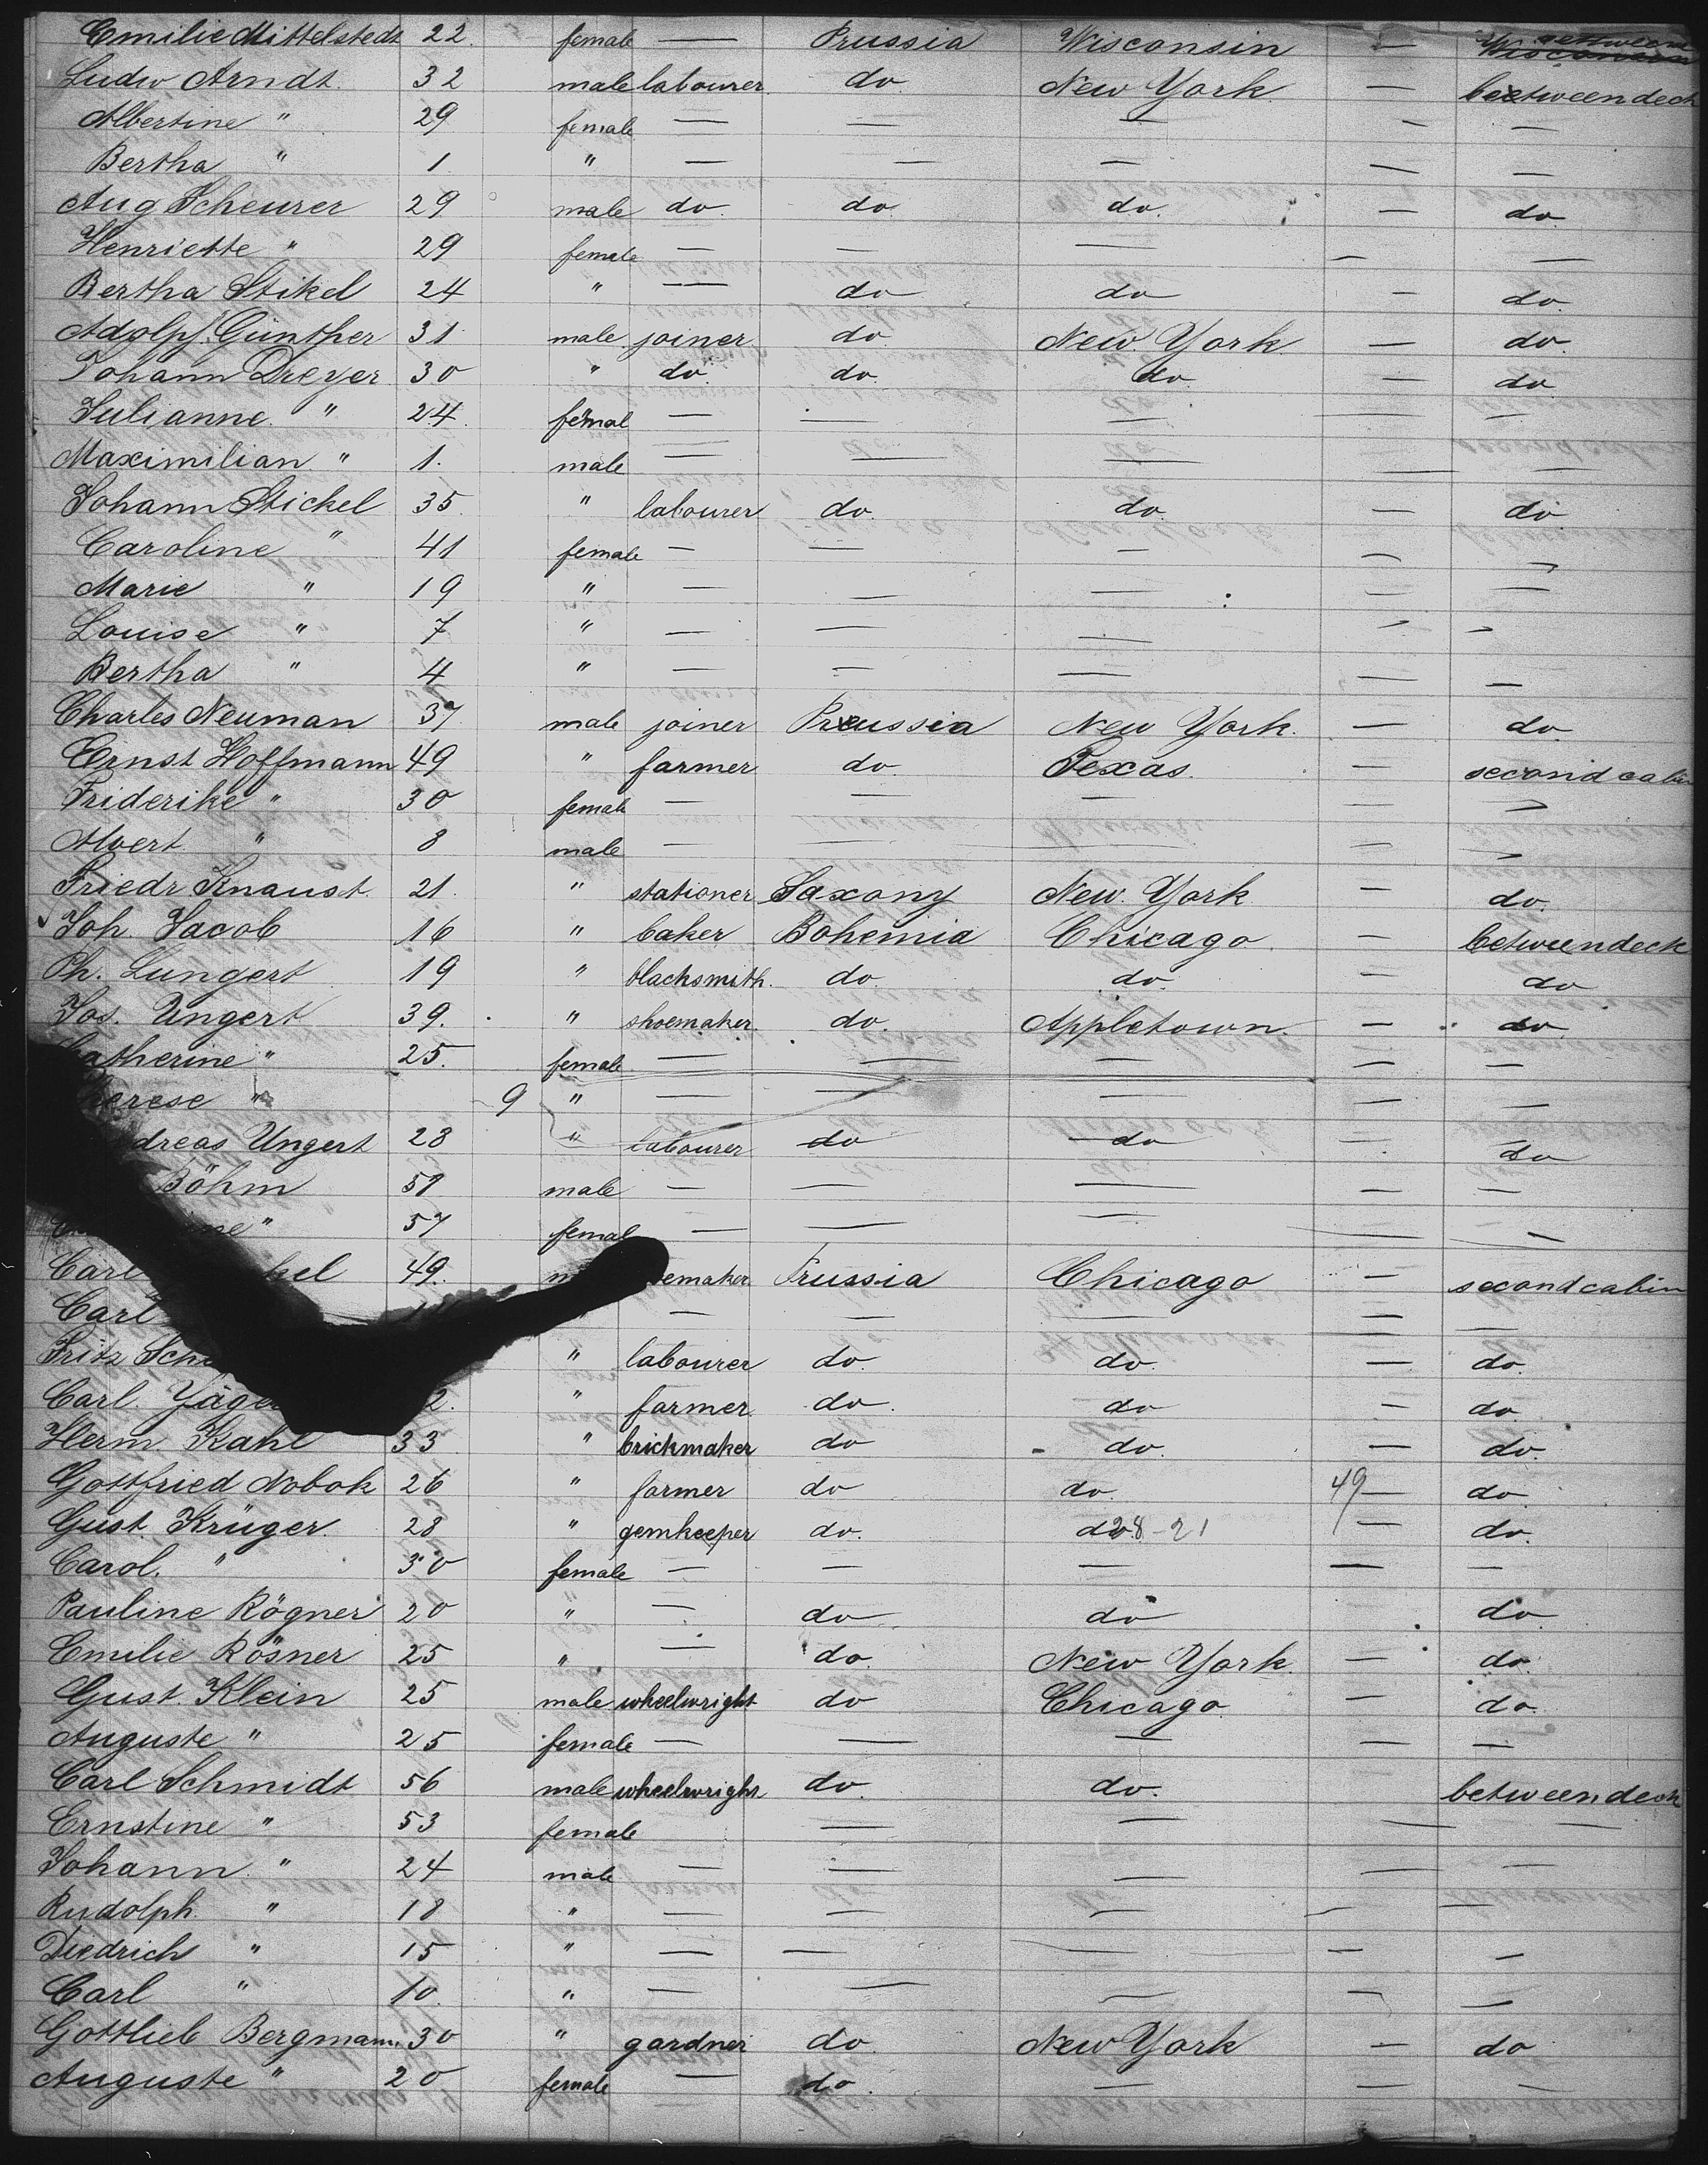 Emilie Mittelstedt 22. female — Prussia Wisconsin —
Ludw Arndt. 32 male labourer. do New York. — betweendeck
Albertine " 29 female — — — — —
Bertha " 1 " — — — — —
Aug Scheurer 29 male do. do do. — do.
Henriette " 29 female — — — — —
Bertha Stikel 24 " — do do — do.
Adolph Günther 31 male joiner do. New York — do.
Johann Dreyer 30 " do. do. do — do
Julianne " 24. femal — — — — —
Maximilian " 1. male — — — — —
Johann Stickel 35. " labourer do. do. — do.
Caroline " 41 female — — — — —
Marie " 19 " — — — — —
Louise " 7 " — — — — —
Bertha " 4 " — — — — —
Charles Neuman 37 male joiner Preussia New York. — do.
Ernst Hoffmann 49 " farmer do. Texas. — second cabin
Friderike " 30 female — — — — —
Albert " 8 male — — — — —
Friedr Knaust. 21. " stationer Saxony New York — do.
Joh. Jacob 16 " baker Bohemia Chicago. — betweendeck
Ph. Lungert 19 " blacksmith. do. do. — do
Jos. Ungert 39. " shoemaker. do. Appletown — do
Catherine " 25. female — — — — —
herese " 9 " — — — — —
dreas Ungert 28 " labourer do do do
Böhm male — — — — —
ine " 57 femal — — — — —
Carl kel 49. emaker Prussia Chicago — second cabin
Carl — — — — —
Fritz Sch " labourer do. do. — do.
Carl. Jäge 2. " farmer do. do — do
Herm. Kahl 33 " brickmaker do do. — do.
Gottfried Nobok 26 " farmer do do. 49 — do
Gust. Krüger. 28 " gemkeeper do. do. 28-21 — do.
Carol. " 30 female — — — — —
Pauline Rögner 20 " — do do do
Emilie Rösner 25 " — do. New York. — do.
Gust. Klein 25 male wheelwright do Chicago. — do.
Auguste " 25 female — — — — —
Carl Schmidt 56 male wheelwrigh. do. do. betweendeck
Ernstine " 53 female — — — —
Johann " 24 male — — — — —
Rudolph. " 18 " — — — — —
Diedrich " 15 " — — — — —
Carl " 10. " — — — —
Gottlieb Bergmann. 30 " gardner do. New York — do
Auguste " 20 female — do. — — —